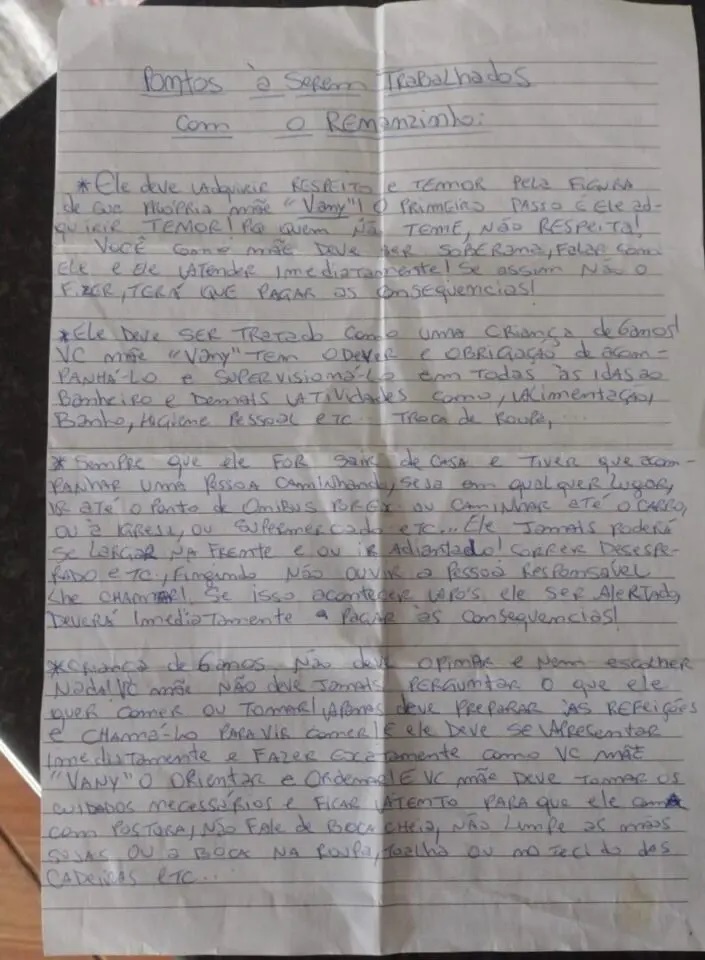 Pontos à Serem Trabalhados
Com o Remanzinho:
*Ele deve Adquirir RESPEITO e TEMOR Pela FIGURA
de sua PRÓPRIA mãe "Vany"! O PRIMEIRO PASSO É Ele ad-
quirir TEMOR! Po quem NÃO TEME, NÃO RESPEITA!
VOCÊ Como mãe DEVE SER SOBERANA, Falar com
Ele e Ele ATENDER Imediatamente! Se assim NÃO O
FIZER, TERÁ QUE PAGAR as consequencias!
*Ele Deve SER TRATADO Como uma CRIANÇA de 6 anos!
VC mãe "Vany" TEM O DEVER e OBRIGAÇÃO de acom-
PANHÁ-LO e SUPERVISIONÁ-LO em TODAS ÀS IDAS ao
Banheiro e Demais ATIVIDADES como, Alimentação,
Banho, Higiene Pessoal etc... TROCA de Roupa,...
*Sempre que ele FOR SAIR de CASA e TIVER que acom-
PANHAR uma Pessoa Caminhando, seja em qualquer lugar,
IR ATÉ O Ponto de Onibus POR EX. ou CAMINHAR ATÉ O CARRO,
OU à IGREJA, OU Supermercado etc... Ele Jamais Poderá
Se LARGAR NA FRENTE e ou IR Adiantado! CORRER DESESPE-
RADO etc., Fingindo NÃO OUVIR a Pessoa Responsável
lhe CHAMAR! Se isso acontecer APÓS ele SER Alertado,
DEVERÁ Imediatamente PAGAR às Consequencias!
*CRIANÇA de 6 anos NÃO deve OPINAR e Nem escolher
Nada! VC mãe NÃO deve Jamais PERGUNTAR O que ele
quer COMER OU TOMAR! APENAS deve PREPARAR AS REFEIÇÕES
e CHAMÁ-LO PARA VIR comer! E ele Deve se APRESENTAR
Imediatamente e FAZER Exatamente como VC MÃE
"VANY" O ORIENTAR e ORDENAR! E VC mãe DEVE TOMAR OS
cuidados necessários e FICAR ATENTO PARA que ele coma
com POSTURA, NÃO Fale de BOCA cheia, NÃO Limpe as mãos
SUJAS OU a BOCA NA ROUPA, toalha OU no Tecido das
CADEIRAS etc...